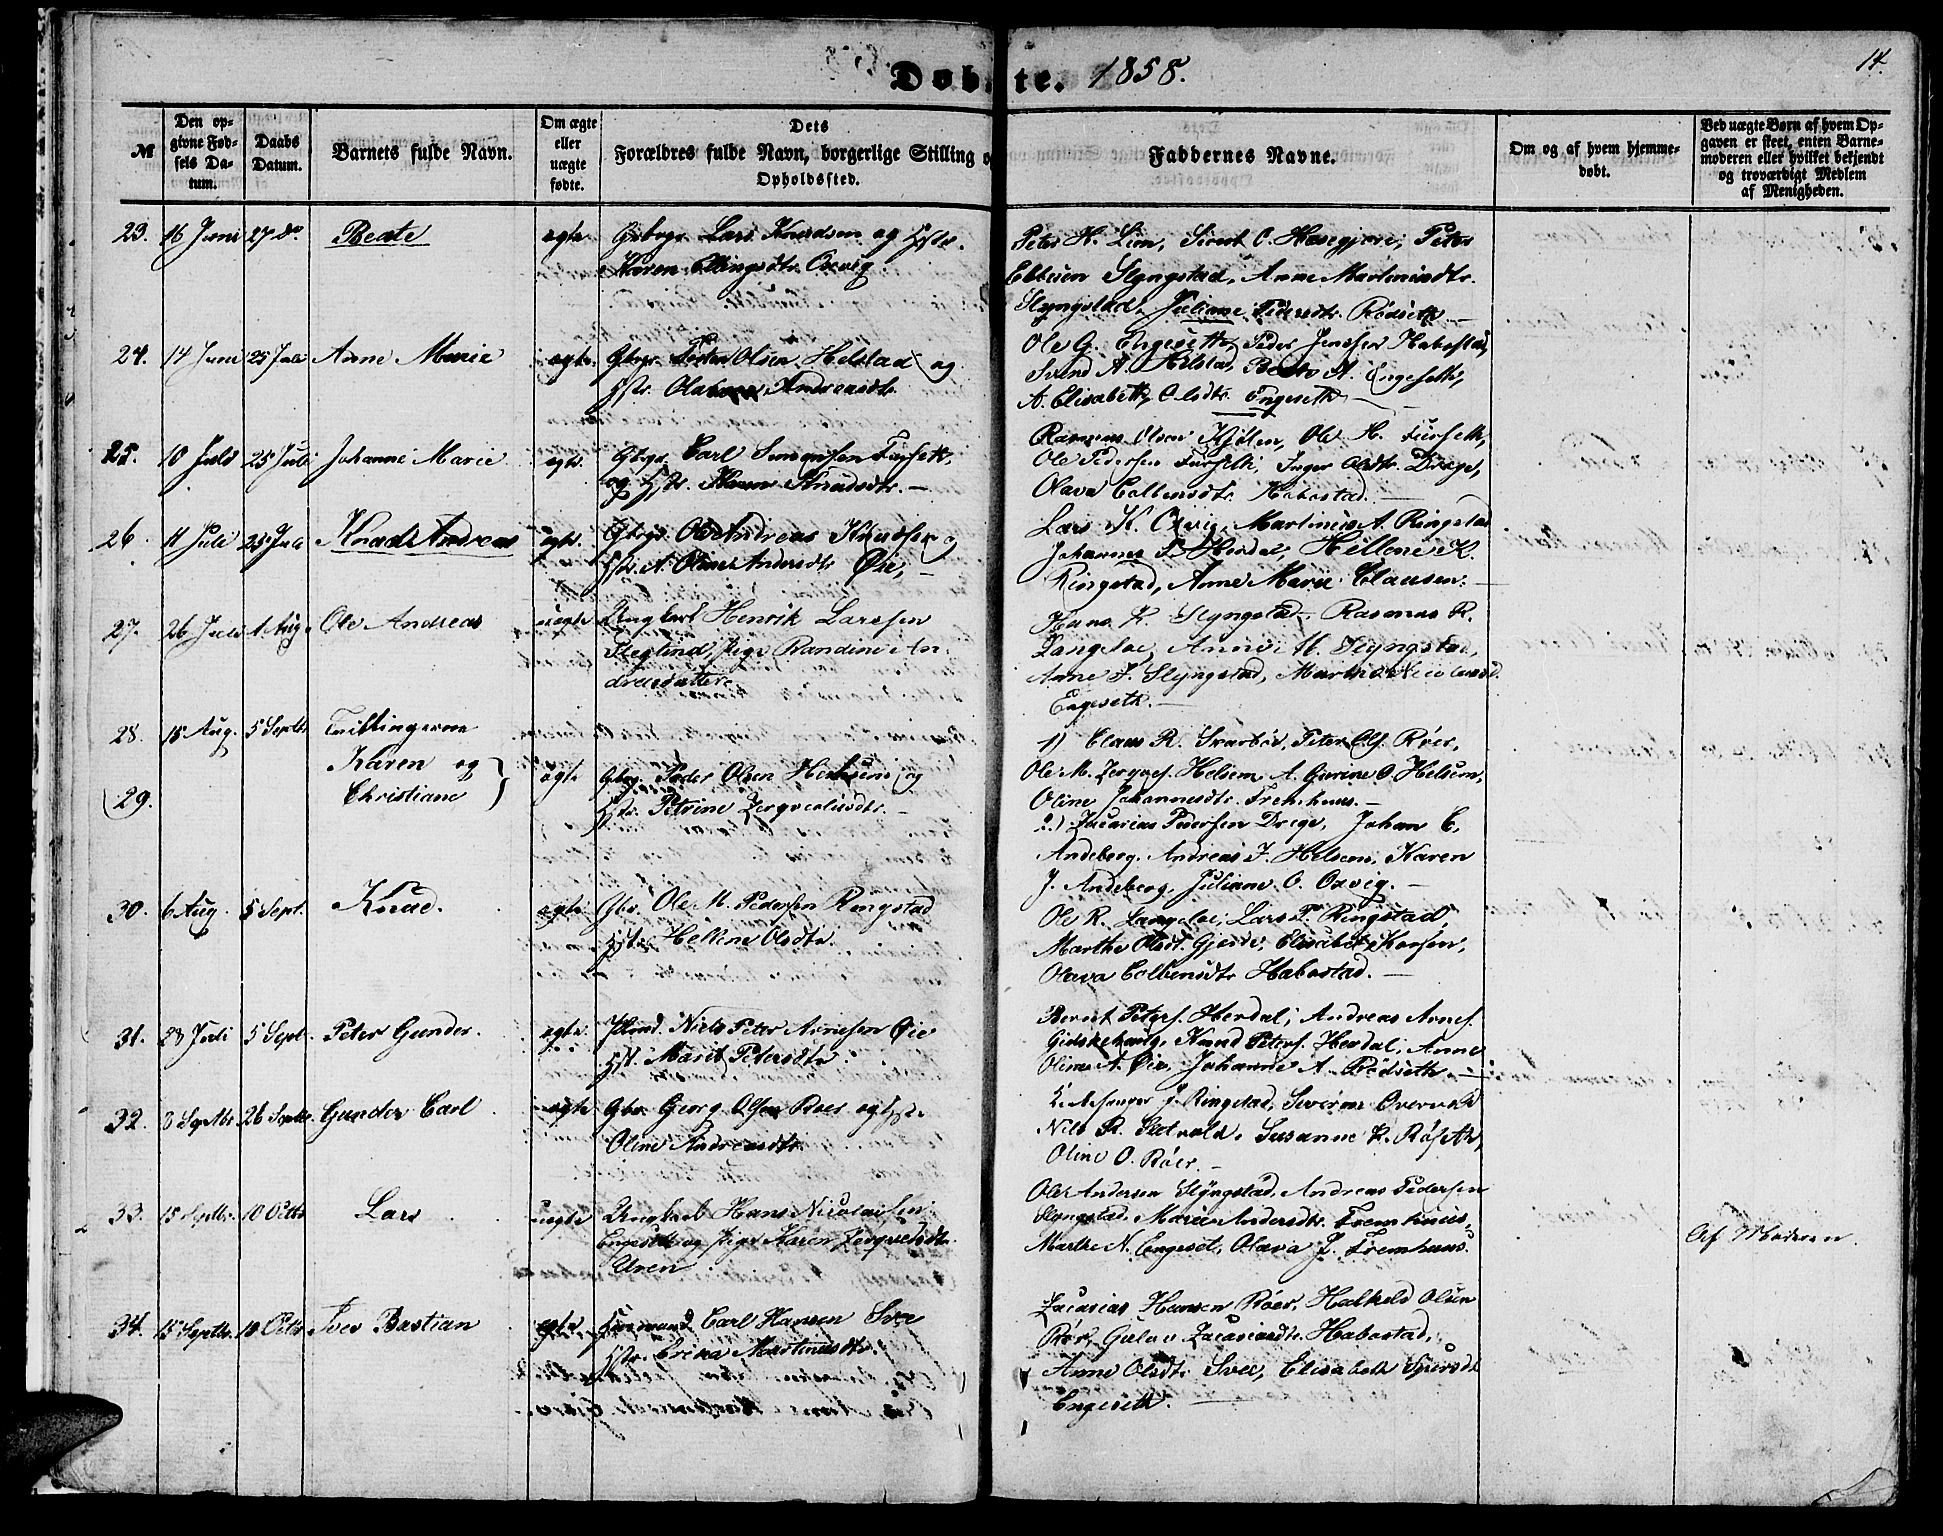 Døbte. 1858.
14.
№
Den opgivne Fødsels Datum.
Daabs Datum.
Barnets fulde Navn.
Om ægte eller uægte fødte.
Dets Forældres fulde Navn, borgerlige Stilling o
Opholdssted.
Faddernes Navne.
Om og af hvem hjemmedøbt.
Ved uægte Børn af hvem Opgaven er skeet, enten Barnemoderen eller hvilket bekjendt og troværdigt Medlem af Menigheden.
23. 16 Juni 27 do Beate ægte Gbrgr. Lars Knudsen og Hstr.
Karen Ellingsdtr. Oxvig.
Peter H. Lien, Sivert C. Hasegjære, Peter
Ebbesen Slyngstad, Anne Martinusdtr.
Slyngstad, Juliane Pedersdtr. Rødseth.
24. 14 Juni 25 Juli Anne Marie ægte. Gbrgr. Peder Olsen Helstad og
Hstr. Andreasdtr.
Ole G. Engeseth, Peder Jenssen Habostad,
Svend A. Helstad, Beate A. Engeseth,
A. Elisabeth Olsdtr. Engeseth
25. 10 Juli 25 Juli Johanne Marie ægte. Gbrgr. Carl
og Hstr. Karen Knudsdtr. —
Rasmus Olsen Kjølen, Ole H. Furseth,
Ole Pedersen Furseth, Inger Olsdtr. Drege,
Olava Colbensdtr. Habostad. —
26. 11 Juli 25 Juli Knud Andreas ægte. Gbrgr. Ole Andreas Knudsen og
Hstr. A. Oline Andersdtr. Øie, —
Lars K. Oxvig, Martinus A. Ringstad
Johannes P. Herdal, Hellene K.
Ringstad, Anne Marie Clausen. —
27. 26 Juli 1 Aug. Ole Andreas uægte Ungkarl Henrik Larssen
Fleglind, Pige Randine An-
dreasdatter.
Hans K. Slyngstad, Rasmus R.
Langeloe, Anne M. Slyngstad,
Anne J. Slyngstad, Marthe Nicolaisd.
Engeseth. —
28. 18 Aug. 5 Septbr. Tvillingerne
Karen og
(29. Christiane ægte Gbrgr. Peder Olsen Helsem og
Hstr. Petrine Zergveelisdtr. —
1) Claus R. Svartbøe, Peter Ols. Røer,
Ole M. Zergvef. Helsem, A. Gurine O. Helsem,
Oline Johannesdtr. Fremhuus. —
2.) Zacarias Pedersen Drege, Johan C.
Andeberg, Andreas J. Helsem, Karen
J. Andeberg, Juliane O. Oxvig. —
30. 6 Aug. 5 Sept. Knud. ægte Gbr. Ole M. Pedersen Ringstad
Hstr. Helline Olsdtr.
Ole R. Langeloe, Lars P. Ringstad,
Marthe Olsdt. Gjerde, Elisabet Karsen,
Olava Colbensdtr Habostad. —
31. 28 Juli 5 Sept. Peter Gunder. ægte Niels Peter Arnesen Øie
Hst. Marit Petersdtr.
Bernt Peters. Herdal, Andreas Arnes.
Gidskehaug, Knud Peters. Herdal, Anne
Oline A. Øie, Johanne A. Rødseth. —
32. 3 Septbr. 26 Septbr. Gunder Carl ægte Gbr. Georg Olsen Røer og Hst.
Oline Andreasdtr.
J. Ringstad, Severine Overvold
Nils R. Satvold, Susanne K. Røseth,
Oline O. Røer. —
33. 15 Septbr. 10 Octbr Lars uægte Ungkarl Hans Nicolaisen
Engeseth og Pige Karen Zergveelisdtr.
Uren.
Ole Andersen Slyngstad, Andreas Pedersen
Slyngstad, Marie Andersdtr. Fremhuus,
Marthe N. Engeset, Olava J. Fremhuus.
Af Moderen.
34. 15 Septbr. 10 Octbr. Iver Bastian ægte Carl Hansen Svee
Hstr. Erika Martinusdtr.
Zacarias Hansen Røer, Halkeld Olsen
Røer, Gulov Zacariasdtr. Habostad,
Anne Olsdtr. Svee, Elisabeth Sjursdt
Engeseth. —